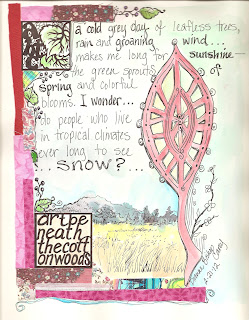 a cold grey day of leafless trees,
rain and groaning wind...
makes me long for sunshine —
the green sprouts of
spring and colorful
blooms. I wonder...
do people who live
in tropical climates
ever long to see
...snow?...
artbe
neath
thecott
onwoods
2-20-12